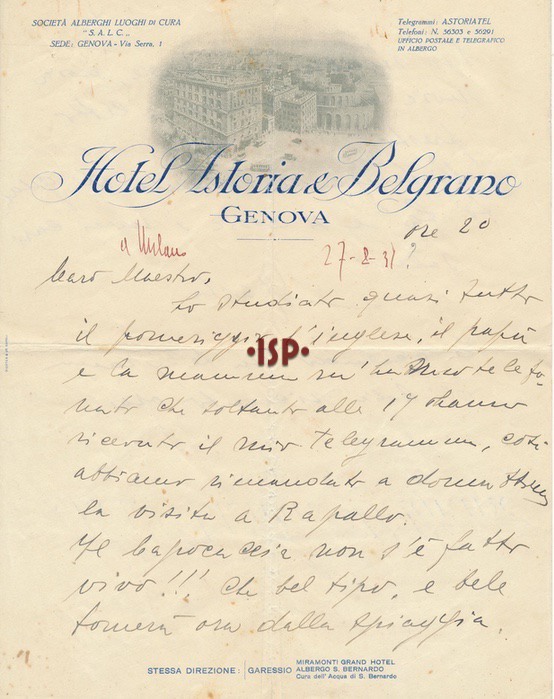 SOCIETÀ ALBERGHI LUOGHI DI CURA
"S.A.L.C.„
SEDE: GENOVA - Via Serra, 1
Telegrammi: ASTORIATEL
Telefoni: N. 56303 e 56291
UFFICIO POSTALE E TELEGRAFICO
IN ALBERGO
Hotel Astoria & Belgrano
GENOVA
ore 20
a Milano
27-8-31?
Caro Maestro,
ho studiato quasi tutto
il pomeriggio l'inglese, il papà
·ISP·
e la mamma m'hanno telefo-
nato che soltanto alle 17 hanno
ricevuto il mio telegramma, così
abbiamo rimandato a domattina
la visita a Rapallo.
Il Capocaccia non s'è fatto
vivo!!! che bel tipo, e
tornerà ora dalla spiaggia.
STESSA DIREZIONE: GARESSIO
MIRAMONTI GRAND HOTEL
ALBERGO S. BERNARDO
Cura dell'Acqua di S. Bernardo